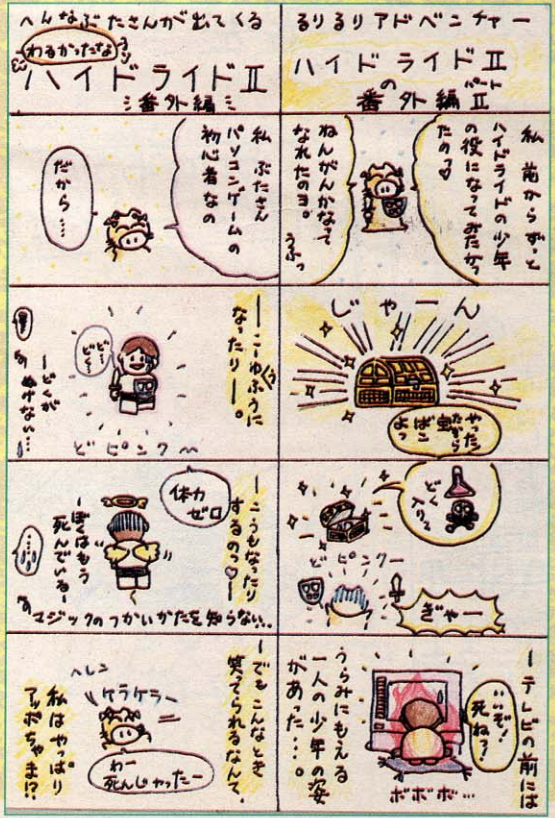 るりるりアドベンチャー
ハイドライドⅡ
の
番外編パートⅡ
私 前からずーと
ハイドライドの少年
の役になってみたかっ
たの♡
ねんがんかなって
なれたのヨ。
うふっ
じゃーん
やったジ
だから
ばン
よっ
どく
入り
どピンクー
ぎゃー
ーテレビの前には
いいぞ!
死ねっ!
うらみにもえる
一人の少年の姿
があった…。
ボボボ…
へんなぶたさんが出てくる
わるかったな
ハイドライドⅡ
番外編
私 ぶたさん
パソコンゲームの
初心者なの
だから…
ーこーゆふうに
なったりー。
ど…
どく…
どピンク〜
ーどくが
ぬけない…
ーこうもなったり
するのっ♡ー
体力
ゼロ
ーぼくはもう
死んでいる。
マジックのつかいかたを知らない…
ーでもこんなとき
笑ってられるなんて、
ヘレン
ケラケラー
わー
死んじゃったー
私はやっぱり
アッポちゃま!?